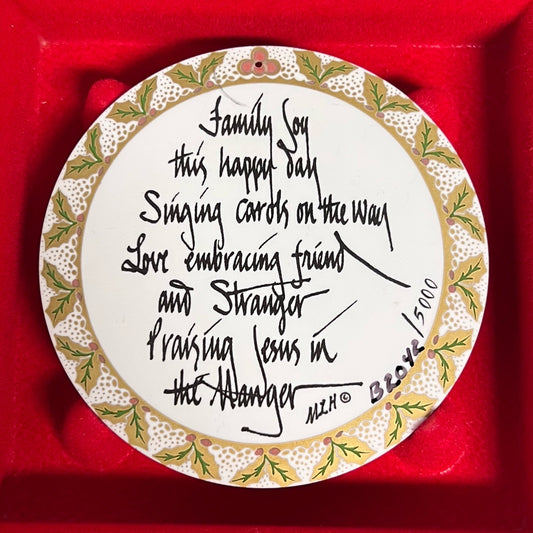 Family Joy
this happy day
Singing carols on the way
Love embracing friend
and Stranger
Praising Jesus in
the Manger
MLH ©
B2042/5000